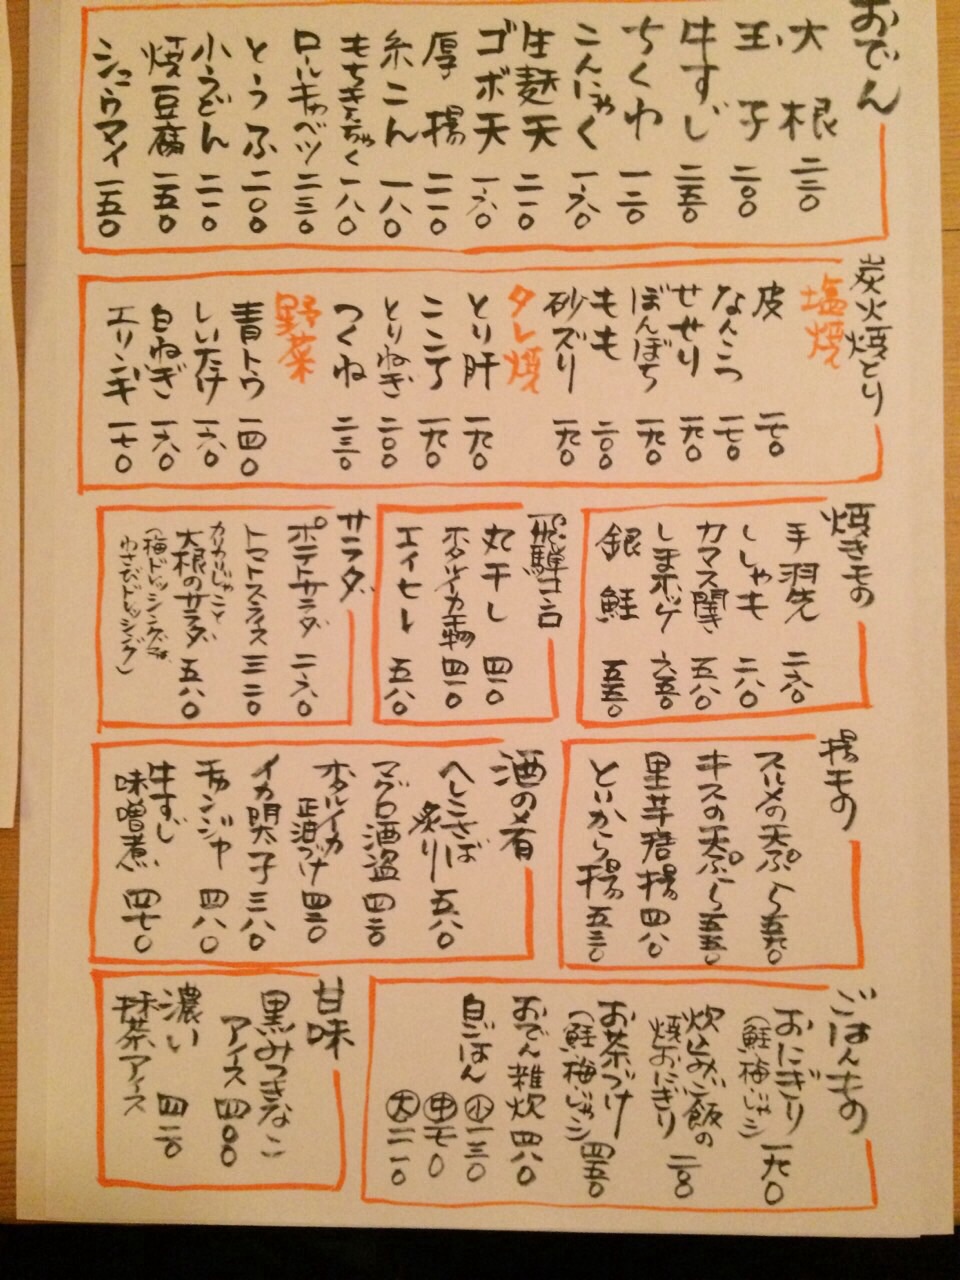 おでん
大根 二三〇
玉子 二〇〇
牛すじ 二五〇
ちくわ 一三〇
こんにゃく 一六〇
生麩天 二一〇
ゴボ天 一六〇
厚揚 二一〇
糸こん 一八〇
もちきんちゃく 一八〇
ロールキャベツ 二三〇
とうふ 二〇〇
小うどん 二一〇
焼豆腐 一五〇
シュウマイ 一五〇
炭火焼とり
塩焼
皮 一七〇
なんこつ 一七〇
せせり 一九〇
ぼんぼち 一九〇
もも 二〇〇
砂ズリ 一九〇
タレ焼
とり肝 一九〇
こころ 一九〇
とりねぎ 二〇〇
つくね 二三〇
野菜
青トウ 一四〇
しいたけ 一六〇
白ねぎ 一六〇
エリンギ 一七〇
焼きもの
手羽先 二六〇
ししゃも 二八〇
カマス開き 五八〇
しまホッケ 六五〇
銀鮭 五五〇
飛騨コンロ
丸干し 四一〇
ホタルイカ干物 四一〇
エイヒレ 五八〇
サラダ
ポテトサラダ 二六〇
トマトスライス 三二〇
カリカリじゃこと
大根のサラダ 五八〇
(梅ドレッシング又は、
わさびドレッシング)
揚もの
スルメの天ぷら 五九〇
キスの天ぷら 五五〇
里芋唐揚 四八〇
といから揚 五三〇
酒の肴
へしこさば
炙り 五八〇
マグロ酒盗 四三〇
ホタルイカ
正油づけ 四三〇
イカ明太子 三八〇
チャンジャ 四八〇
牛すじ
味噌煮 四七〇
ごはんもの
おにぎり 一九〇
(鮭梅じゃこ)
炊込みご飯の
焼おにぎり 二一〇
お茶づけ 四五〇
(鮭梅じゃこ)
おでん雑炊 四八〇
白ごはん
小 一三〇
中 一七〇
大 二一〇
甘味
黒みつきなこ
アイス 四〇〇
濃い
抹茶アイス 四二〇